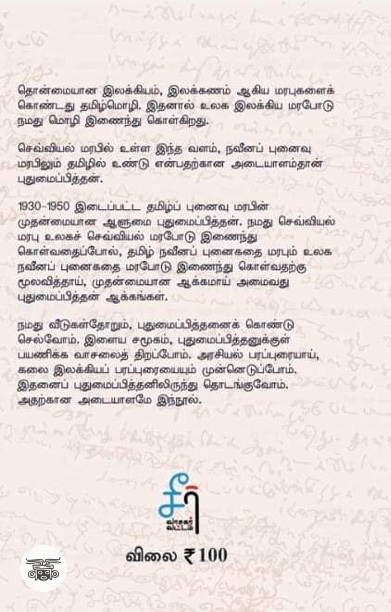 தொன்மையான இலக்கியம், இலக்கணம் ஆகிய மரபுகளைக்
கொண்டது தமிழ்மொழி. இதனால் உலக இலக்கிய மரபோடு
நமது மொழி இணைந்து கொள்கிறது.
செவ்வியல் மரபில் உள்ள இந்த வளம், நவீனப் புனைவு
மரபிலும் தமிழில் உண்டு என்பதற்கான அடையாளம்தான்
புதுமைப்பித்தன்.
1930-1950 இடைப்பட்ட தமிழ்ப் புனைவு மரபின்
முதன்மையான ஆளுமை புதுமைப்பித்தன். நமது செவ்வியல்
மரபு உலகச் செவ்வியல் மரபோடு இணைந்து
கொள்வதைப்போல், தமிழ் நவீனப் புனைகதை மரபும் உலக
நவீனப் புனைகதை மரபோடு இணைந்து கொள்வதற்கு
மூலவித்தாய், முதன்மையான ஆக்கமாய் அமைவது
புதுமைப்பித்தன் ஆக்கங்கள்.
நமது வீடுகள்தோறும், புதுமைப்பித்தனைக் கொண்டு
செல்வோம். இளைய சமூகம், புதுமைப்பித்தனுக்குள்
பயணிக்க வாசலைத் திறப்போம். அரசியல் பரப்புரையாய்,
கலை இலக்கியப் பரப்புரையையும் முன்னெடுப்போம்.
இதனைப் புதுமைப்பித்தனிலிருந்து தொடங்குவோம்.
அதற்கான அடையாளமே இந்நூல்.
சீர்
வாசகர்
வட்டம்
விலை ₹ 100